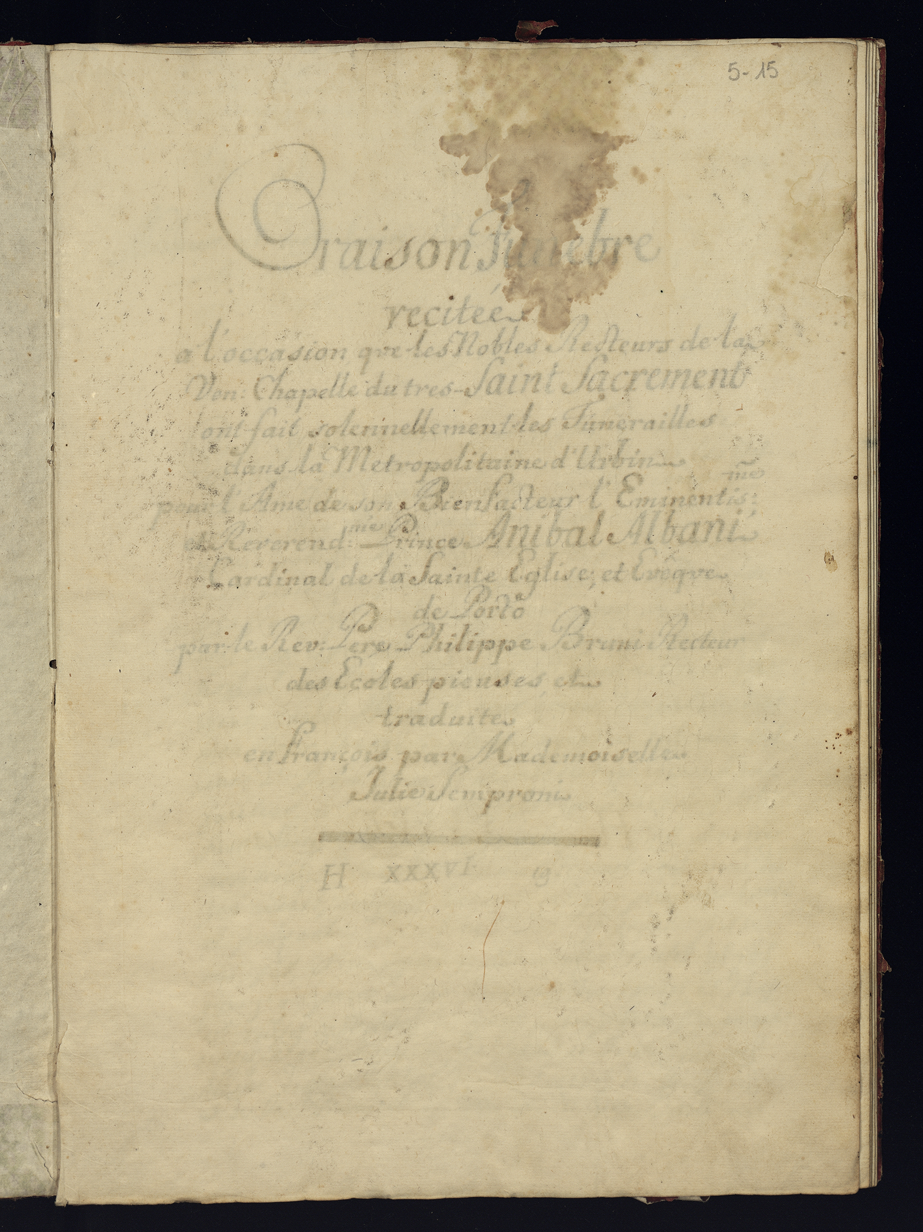 5-15
Oraison Funebre
recitée
a l'occasion que les Nobles Recteurs de la
Ven: Chapelle du tres-Saint Sacrement
ont fait solennellement les Funerailles
dans la Metropolitaine d'Urbin
pour l'Ame de son Bienfacteur l'Eminentis:me
et Reverend:me Prince Anibal Albani
Cardinal de la Sainte Eglise, et Evêque
de Porto
par le Rev: Pere Philippe Bruni Recteur
des Ecoles pieuses et
traduite
en François par Mademoiselle
Julie Semproni
H XXXVI 9